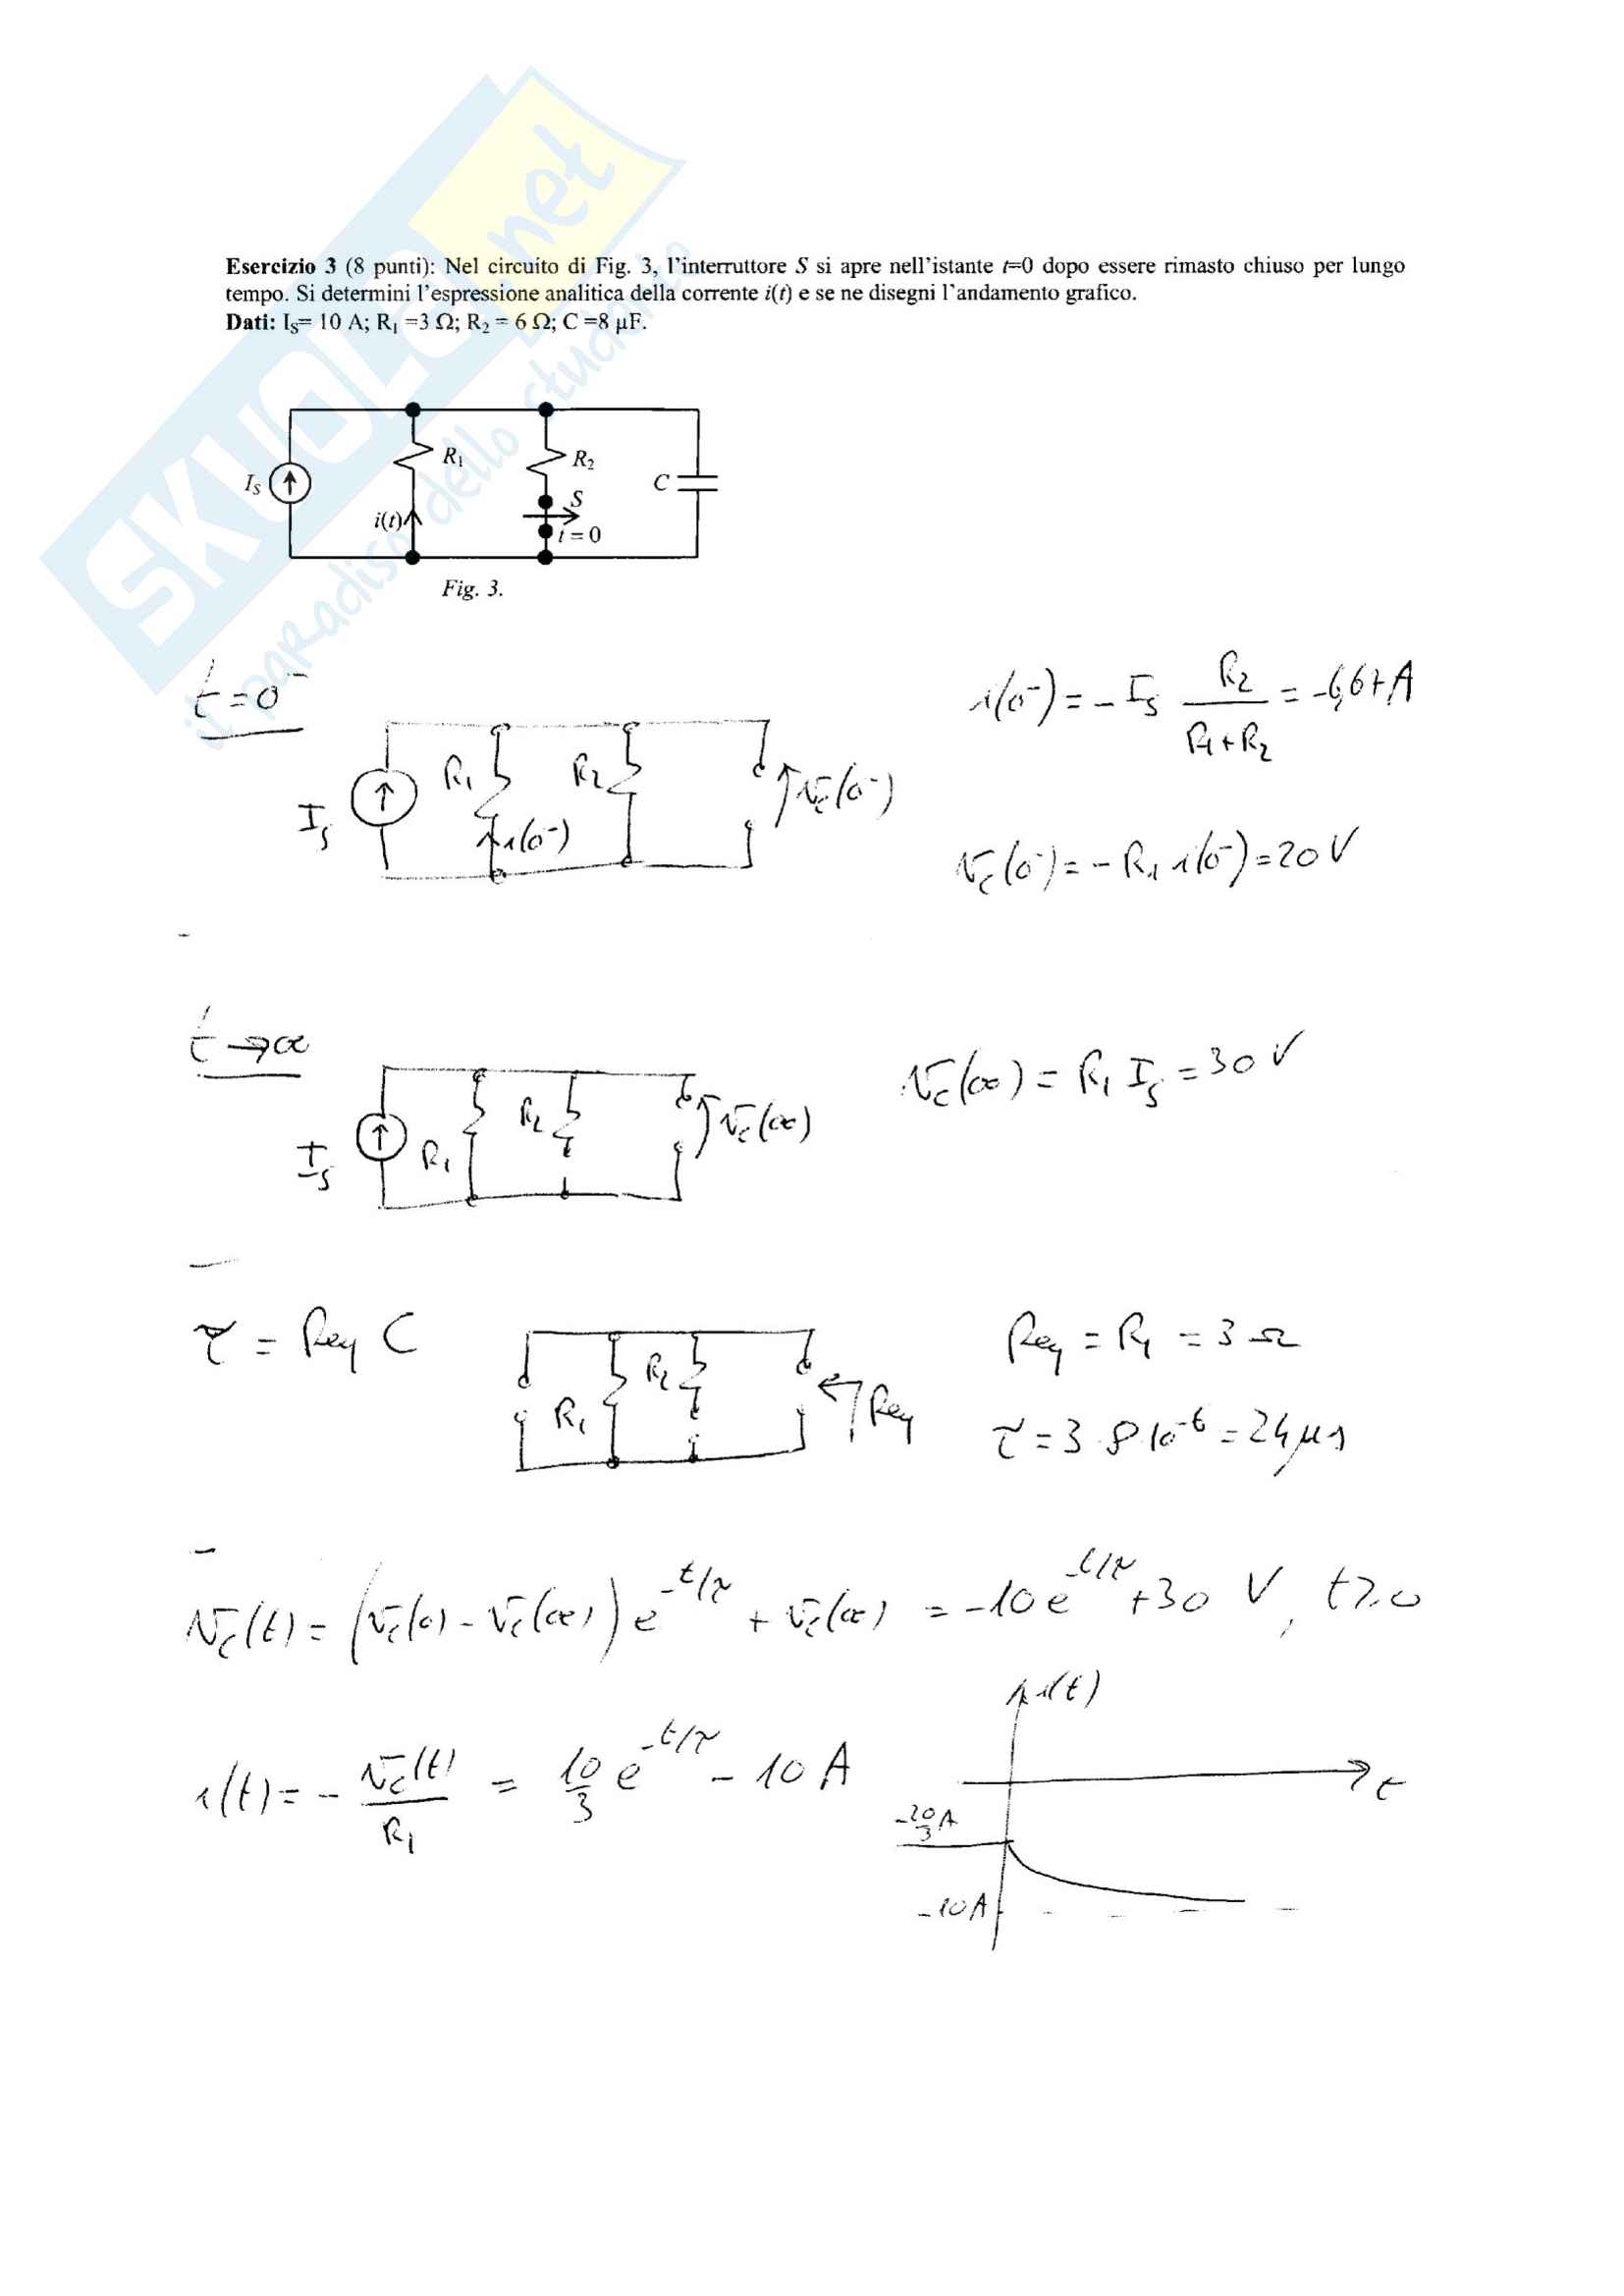 SKUOLA.net
il paradiso dello studente
Esercizio 3 (8 punti): Nel circuito di Fig. 3, l'interruttore S si apre nell'istante t=0 dopo essere rimasto chiuso per lungo
tempo. Si determini l'espressione analitica della corrente i(t) e se ne disegni l'andamento grafico.
Dati: I_S= 10 A; R₁ =3 Ω; R₂ = 6 Ω; C =8 μF.
I_S R₁ i(t) R₂ S t = 0 C
Fig. 3.
t = 0⁻
I_S R₁ i(0⁻) R₂ v_C(0⁻)
i(0⁻) = - I_S R₂ / (R₁+R₂) = -6,67 A
v_C(0⁻) = - R₁ i(0⁻) = 20 V
t → ∞
I_S R₁ R₂ v_C(∞)
v_C(∞) = R₁ I_S = 30 V
τ = Req C
R₁ R₂ Req
Req = R₁ = 3 Ω
τ = 3 · 8 · 10⁻⁶ = 24 μs
v_C(t) = (v_C(0) - v_C(∞)) e^(-t/τ) + v_C(∞) = -10 e^(-t/τ) + 30 V, t ≥ 0
i(t) = - v_C(t) / R₁ = 10/3 e^(-t/τ) - 10 A
i(t)
t
-20/3 A
-10 A